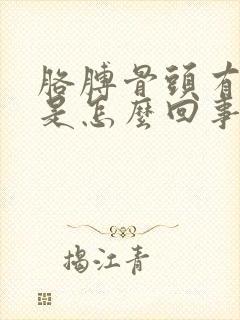 胳膊骨頭有
是怎麼回事
揭江青